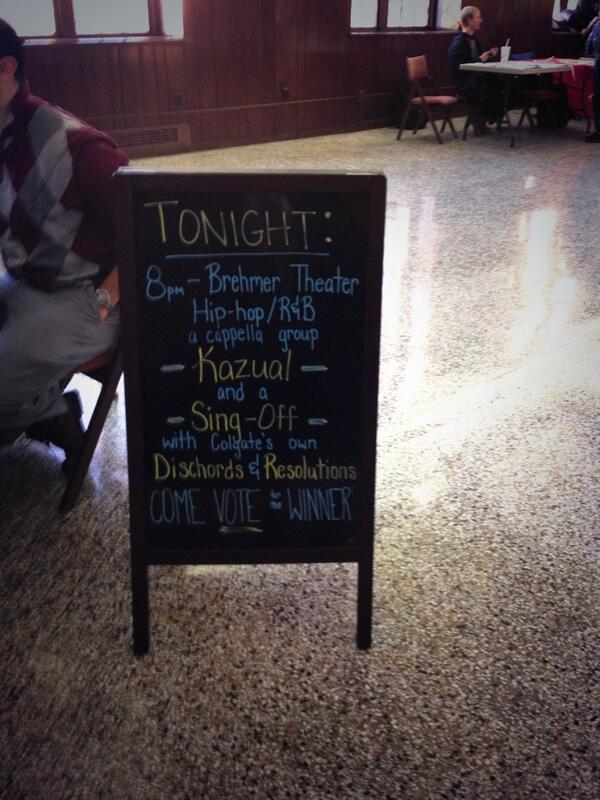 TONIGHT:
8pm - Brehmer Theater
Hip-hop/R&B
a cappella group
- Kazual -
and a
- Sing-Off -
with Colgate's own
Dischords & Resolutions
COME VOTE for the WINNER